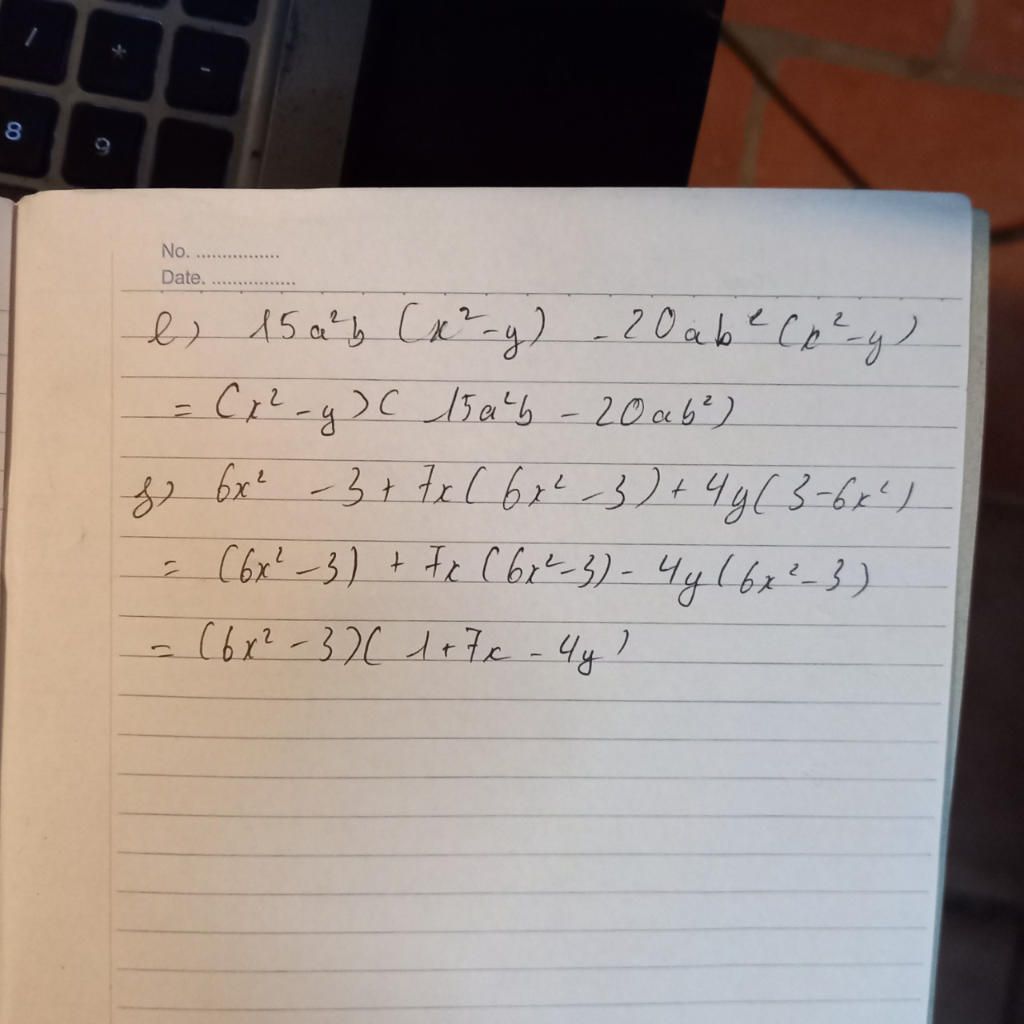 / * -
8 9
No. ................
Date. ................
e) 15a²b (x²-y) - 20ab² (x²-y)
= (x² - y)( 15a²b - 20ab²)
f) 6x² - 3 + 7x( 6x² - 3) + 4y( 3-6x²)
= (6x² - 3) + 7x (6x²-3) - 4y (6x²-3)
= (6x² - 3)( 1+7x - 4y)